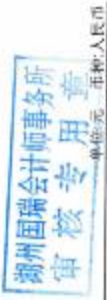 湖州国瑞会计师事务所
审核专用章
单位:元 币种:人民币